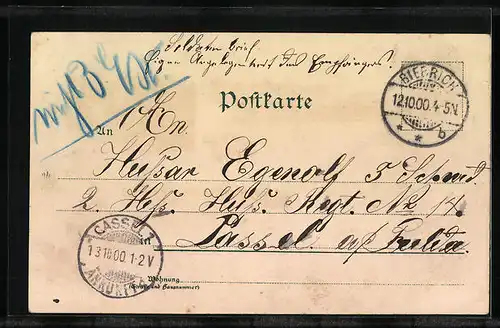 Soldatenbrief
Eigne Angelegenheit des Empfängers.
BIEBRICH
12.10.00. 4-5N.
* * b
Postkarte
An
Husar Egenolf 5 Schwd.
2. Hess. Hus. Regt. No 14.
in
Cassel a/ Fulda
CASSEL 1
13.10.00. 1-2 V
ANKUNFT
Wohnung
(Straße und Hausnummer)